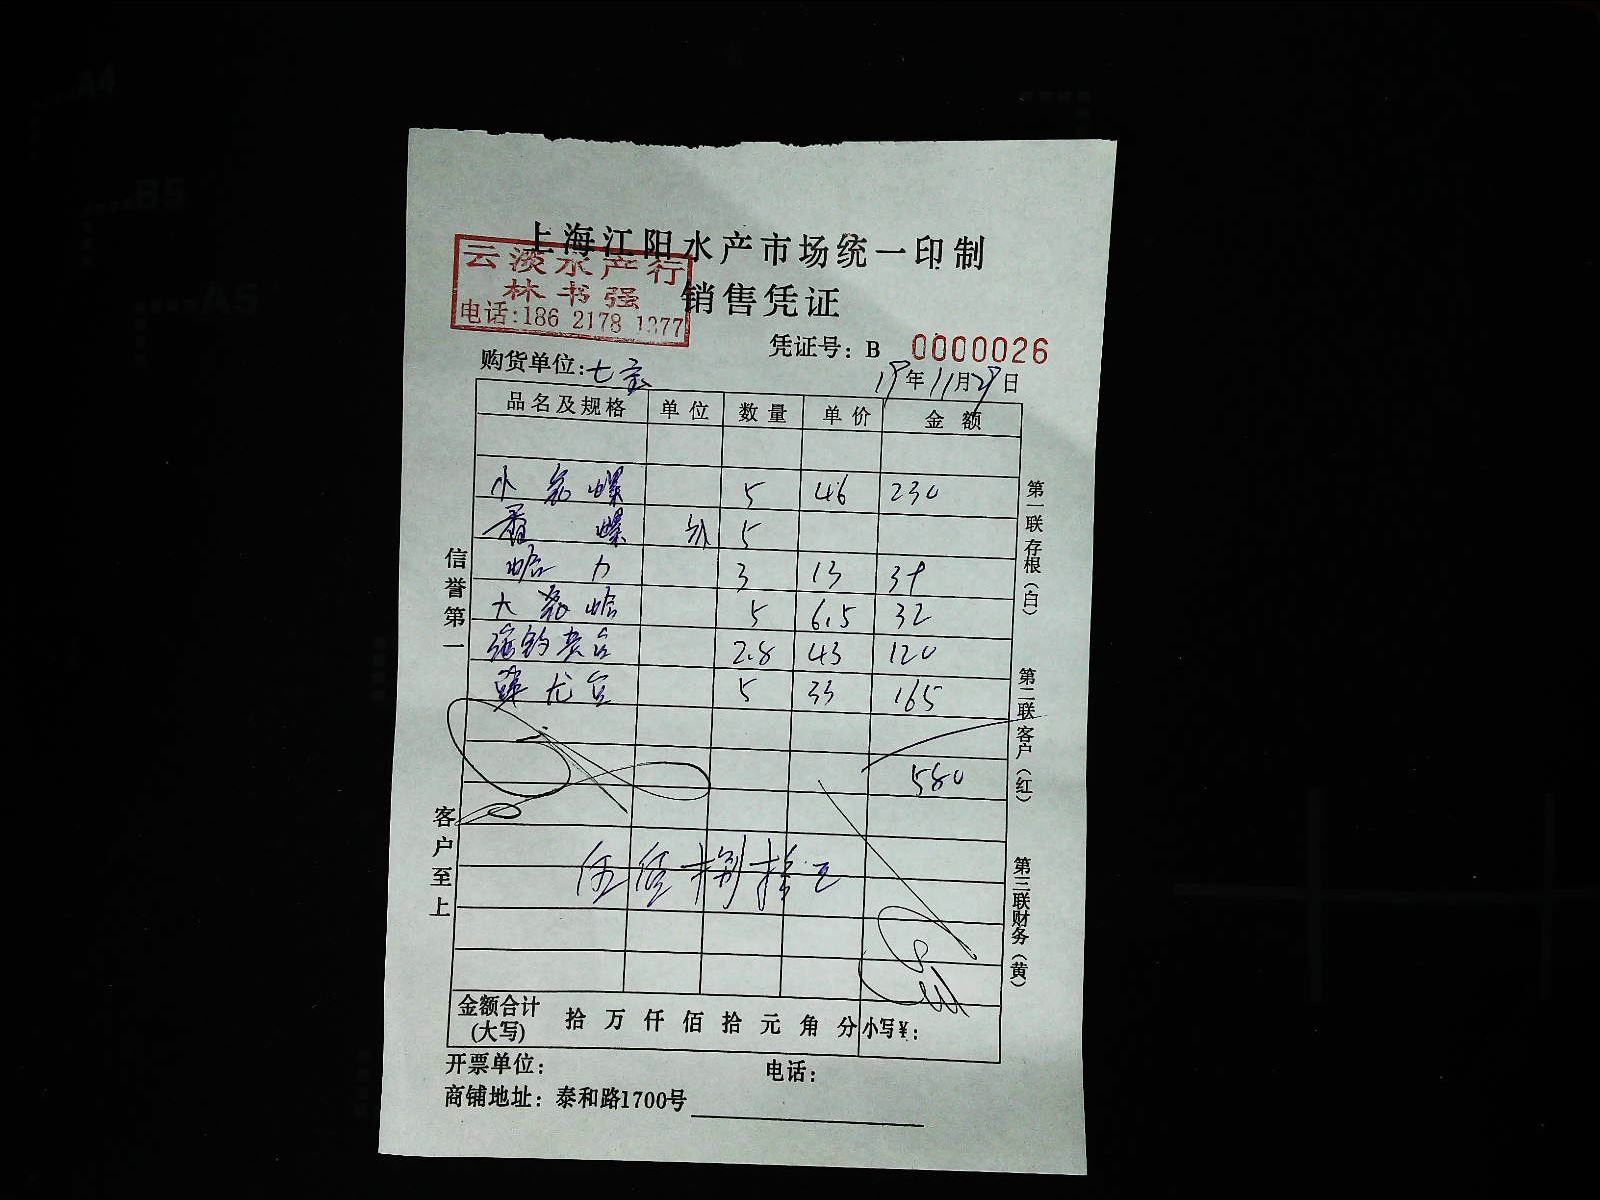 上海江阳水产市场统一印制
云淡水产行
林书强
电话:186 2178 1377
销售凭证
凭证号: B 0000026
购货单位:七宝
19年11月29日
品名及规格 单位 数量 单价 金额
小 螺 5 46 230
螺 5
蛤 3 13 39
大 蛤 5 6.5 32
2.8 43 120
龙 5 33 165
580
伍佰捌拾元
金额合计(大写) 拾 万 仟 佰 拾 元 角 分 小写¥:
开票单位: 电话:
商铺地址: 泰和路1700号
信誉第一
客户至上
第一联存根(白)
第二联客户(红)
第三联财务(黄)
A4
B5
A5